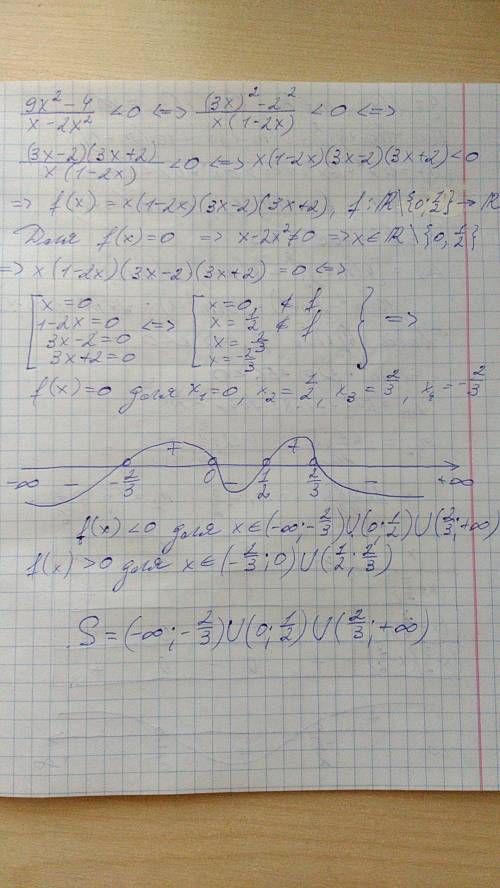 (9x²-4)/(x-2x²) <0 <=> ((3x)²-2²)/(x(1-2x)) <0 <=>
((3x-2)(3x+2))/(x(1-2x)) <0 <=> x(1-2x)(3x-2)(3x+2)<0
=> f(x) = x(1-2x)(3x-2)(3x+2), f: ℝ\{0; 1/2} → ℝ
Для f(x)=0 => x-2x²≠0 => x∈ℝ\{0, 1/2}
=> x(1-2x)(3x-2)(3x+2) = 0 <=>
[ x = 0 [ x = 0, ∉ f }
1-2x = 0 <=> x = 1/2 ∉ f =>
3x-2 = 0 x = 2/3
3x+2 = 0 x = -2/3
f(x)=0 для x₁=0, x₂=1/2, x₃=2/3, x₄=-2/3
+ +
-∞ - -2/3 0 - 1/2 2/3 - +∞
f(x)<0 для x∈(-∞;-2/3)∪(0;1/2)∪(2/3;+∞)
f(x)>0 для x∈(-2/3;0)∪(1/2;2/3)
S=(-∞;-2/3)∪(0;1/2)∪(2/3;+∞)